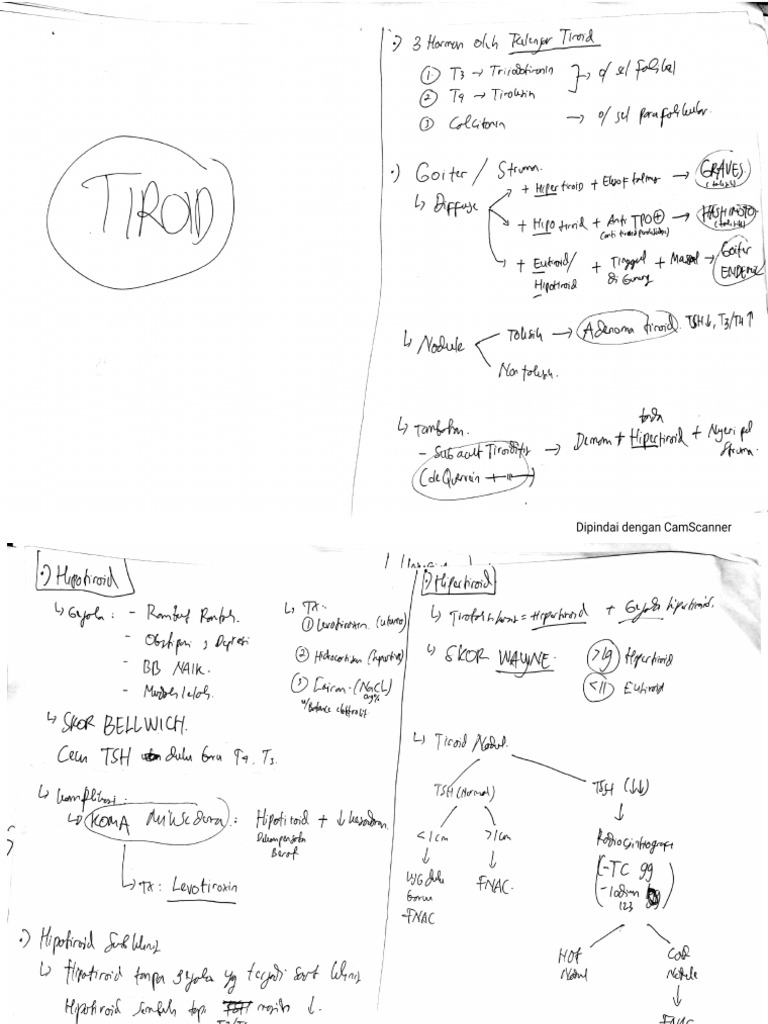 TIROID
•) 3 Hormon oleh Kelenjar Tiroid
① T3 → Triiodotironin
② T4 → Tiroksin
} → o/ sel folikel
③ Calcitonin → o/ sel parafolikular.
•) Goiter / Struma.
↳ Diffuse
+ Hipertiroid + Eksoftalmus → GRAVES
(toksik)
+ Hipotiroid + Anti TPO ⊕ → HASHIMOTO
+ Eutiroid/ Hipotiroid + Tinggal di Gunung + Massal → Goiter ENDEMIK
↳ Nodule
Toksik → Adenoma tiroid. TSH↓, T3/T4 ↑
Non toksik.
↳ Tambahan.
- Subacute Tiroiditis → Demam + tanda Hipertiroid + Nyeri pd Struma.
(de Quervain
Dipindai dengan CamScanner
•) Hipotiroid
↳ Gejala : - Rambut Rontok.
- Obstipasi, Depresi
- BB NAIK.
- Mudah lelah.
↳ Tx:
① Levotiroxin (utama)
② Hidrocortison
③ Cairan (NaCl) 0,9%
u/ Balance elektrolit
↳ SKOR BELLWICH.
Cek TSH dulu baru T4, T3.
↳ Komplikasi:
↳ KOMA miksedema : Hipotiroid + ↓ kesadaran.
Dekompensata Berat
↳ Tx: Levotiroxin
•) Hipotiroid Subklinis
↳ Hipotiroid tanpa gejala yg terjadi saat
Hipotiroid sembuh tapi masih ↓.
•) Hipertiroid
↳ Tirotoksikosis = Hipertiroid + Gejala hipertiroid.
↳ SKOR WAYNE.
>19 Hipertiroid
<11 Eutiroid
↳ Tiroid Nodul.
TSH (Normal)
TSH (↓↓)
<1cm
>1cm
↓
USG dulu baru
-FNAC
↓
FNAC.
↓
Radioscintigrafi
(-TC 99
- Iodium 123)
HOT Nodul
COLD Nodule
↓
FNAC